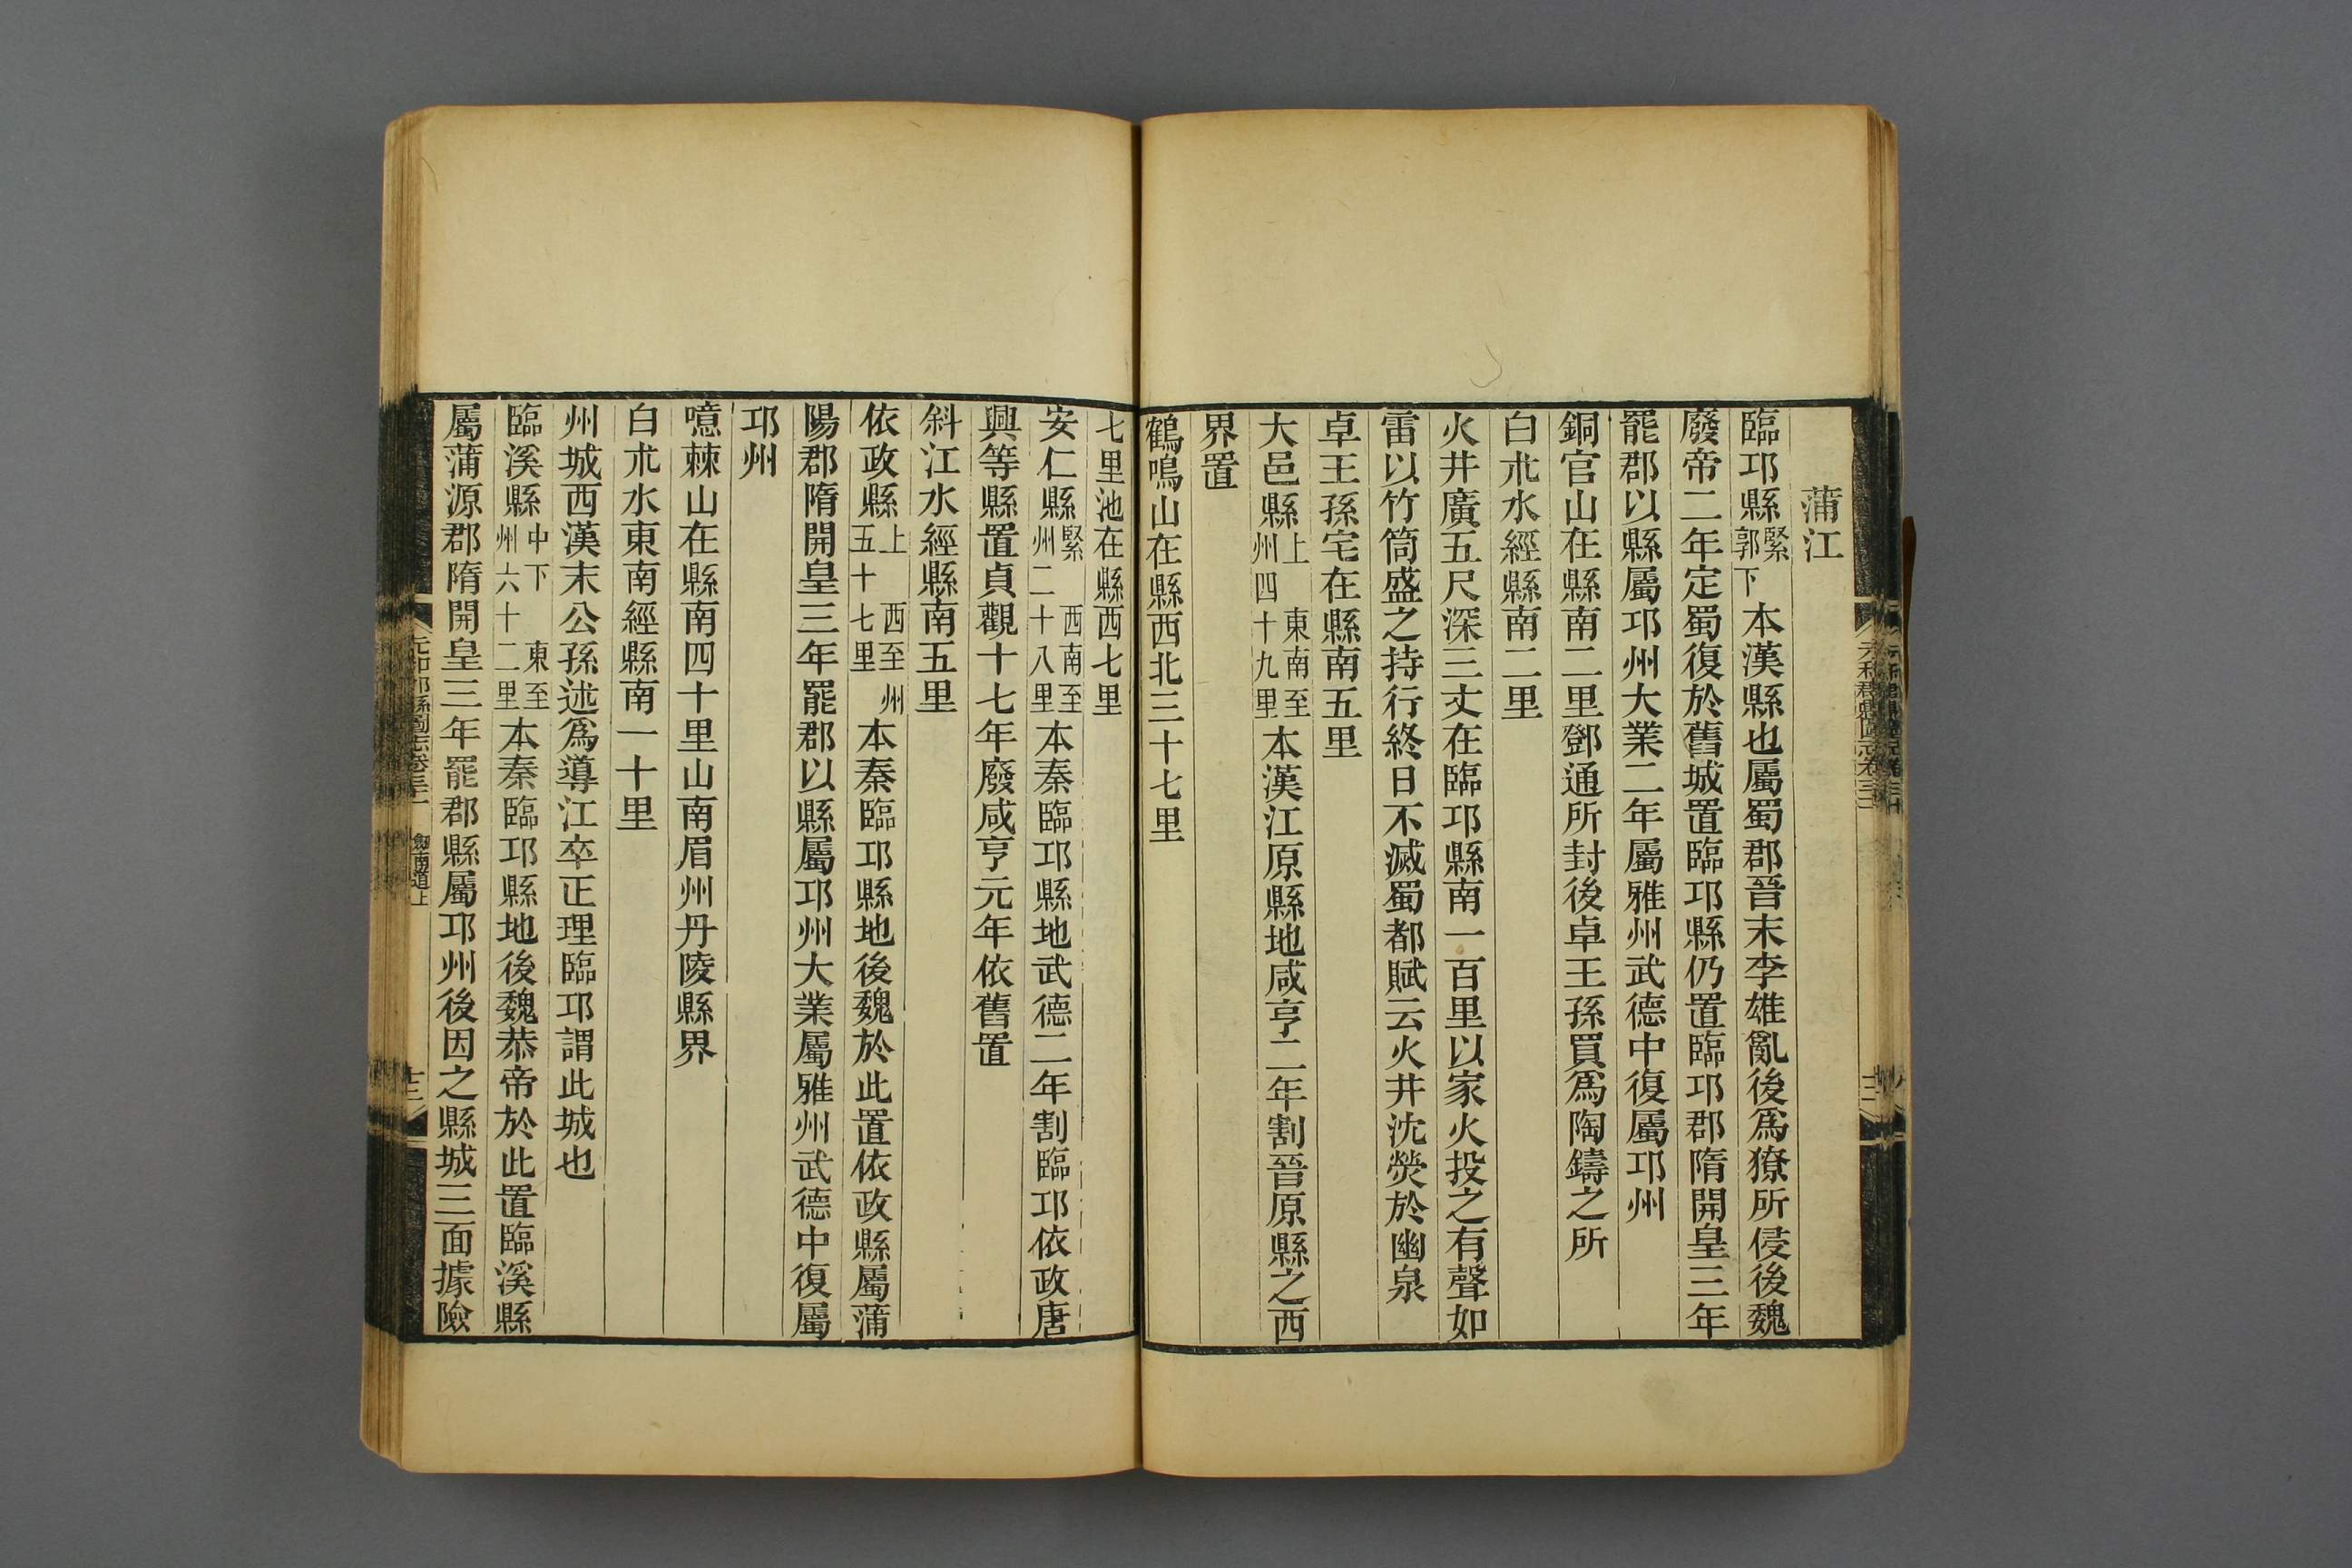 蒲江
臨邛縣緊郭下本漢縣也屬蜀郡晉末李雄亂後爲獠所侵後魏
廢帝二年定蜀復於舊城置臨邛縣仍置臨邛郡隋開皇三年
罷郡以縣屬邛州大業二年屬雅州武德中復屬邛州
銅官山在縣南二里鄧通所封後卓王孫買爲陶鑄之所
白朮水經縣南二里
火井廣五尺深三丈在臨邛縣南一百里以家火投之有聲如
雷以竹筒盛之持行終日不滅蜀都賦云火井沈熒於幽泉
卓王孫宅在縣南五里
大邑縣上東南至州四十九里本漢江原縣地咸亨二年割晉原縣之西
界置
鶴鳴山在縣西北三十七里
七里池在縣西七里
安仁縣緊西南至州二十八里本秦臨邛縣地武德二年割臨邛依政唐
興等縣置貞觀十七年廢咸亨元年依舊置
斜江水經縣南五里
依政縣上西至州五十七里本秦臨邛縣地後魏於此置依政縣屬蒲
陽郡隋開皇三年罷郡以縣屬邛州大業屬雅州武德中復屬
邛州
噫棘山在縣南四十里山南眉州丹陵縣界
白朮水東南經縣南一十里
州城西漢末公孫述爲導江卒正理臨邛謂此城也
臨溪縣中下東至州六十二里本秦臨邛縣地後魏恭帝於此置臨溪縣
屬蒲源郡隋開皇三年罷郡縣屬邛州後因之縣城三面據險
元和郡縣圖志卷三十一
劍南道上
十三